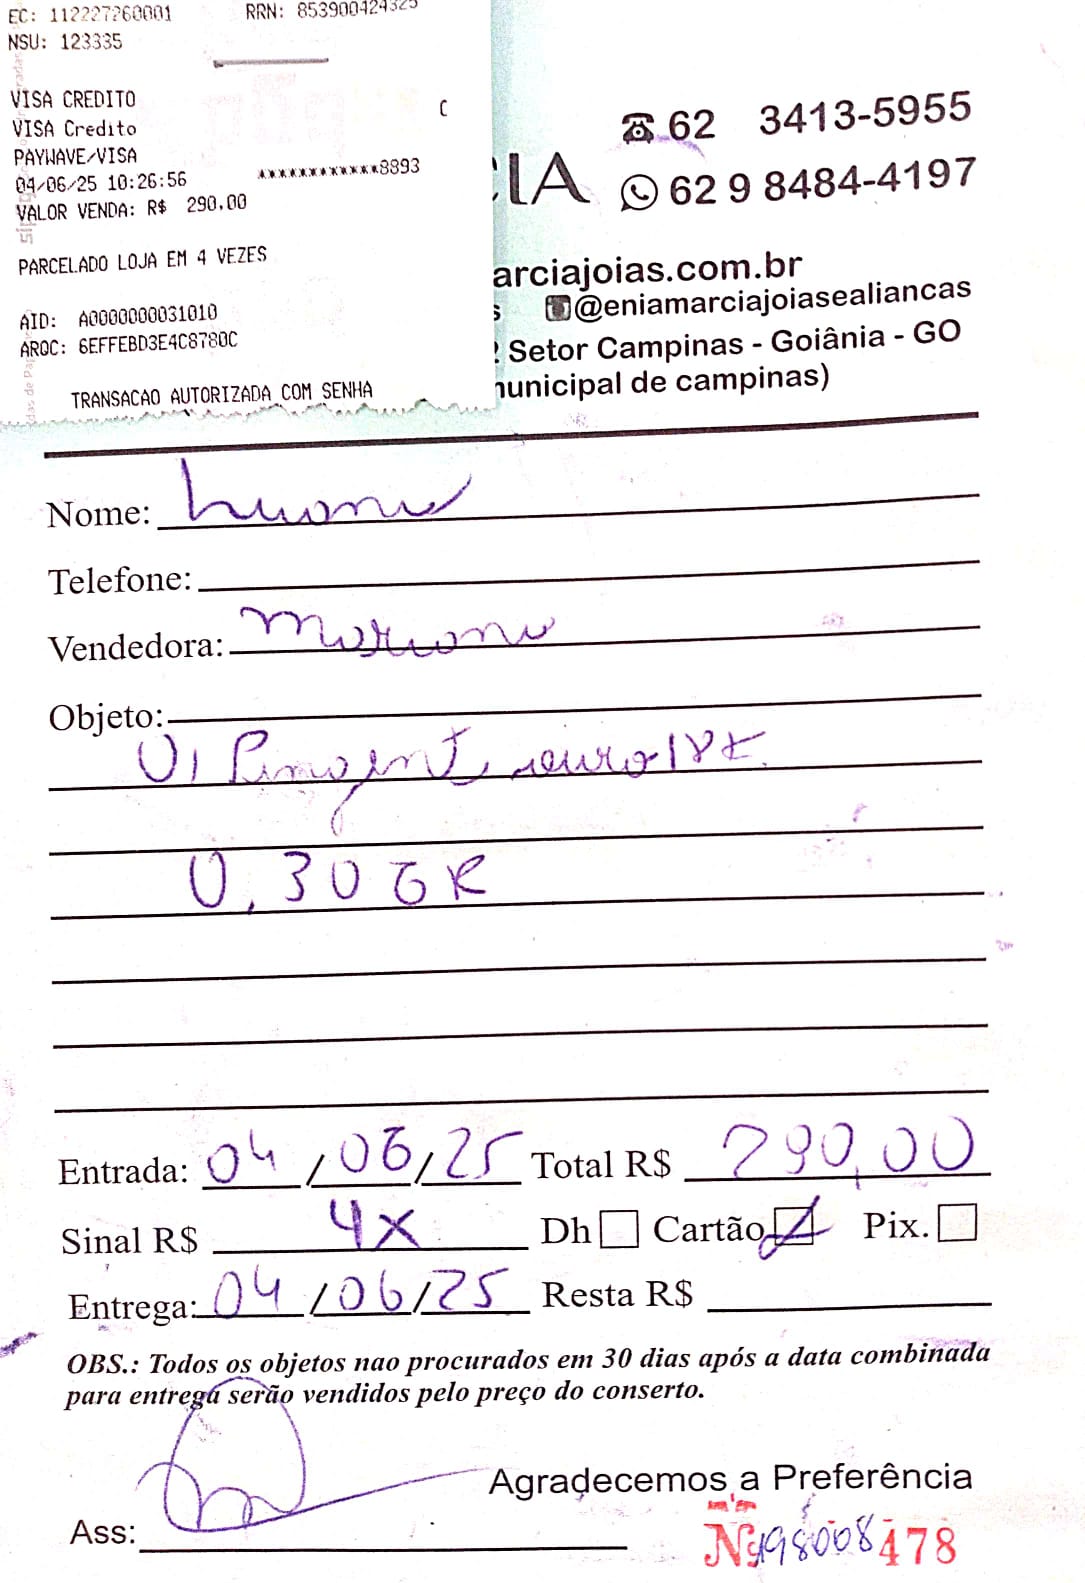 EC: 112227260001 RRN: 853900424325
NSU: 123335
VISA CREDITO C
VISA Credito
PAYWAVE/VISA
04/06/25 10:26:56 ************8893
VALOR VENDA: R$ 290,00
PARCELADO LOJA EM 4 VEZES
AID: A0000000031010
ARQC: 6EFFEBD3E4C8780C
TRANSACAO AUTORIZADA COM SENHA
62 3413-5955
CIA 62 9 8484-4197
arciajoias.com.br
s @eniamarciajoiasealiancas
Setor Campinas - Goiânia - GO
unicipal de campinas)
Nome:
Telefone:
Vendedora:
Objeto:
01 Pingente ouro 18K.
0,30 GR
Entrada: 04/06/25 Total R$ 290,00
Sinal R$ 4x Dh Cartão Pix.
Entrega: 04/06/25 Resta R$
OBS.: Todos os objetos nao procurados em 30 dias após a data combinada
para entrega serão vendidos pelo preço do conserto.
Agradecemos a Preferência
Ass: Nº 478